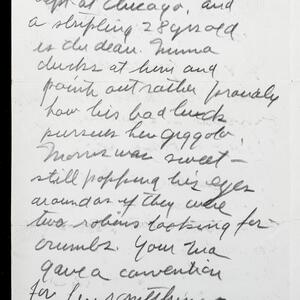 dept at Chicago, and
a stripling 28 yrs old
is the dean. Numa
ducks at him and
points out rather
how his bad luck
pursues her gigolo.
Morris was sweet –
still popping his eyes
around as if they were
two robins looking for
crumbs. Your Ma
gave a convention
for